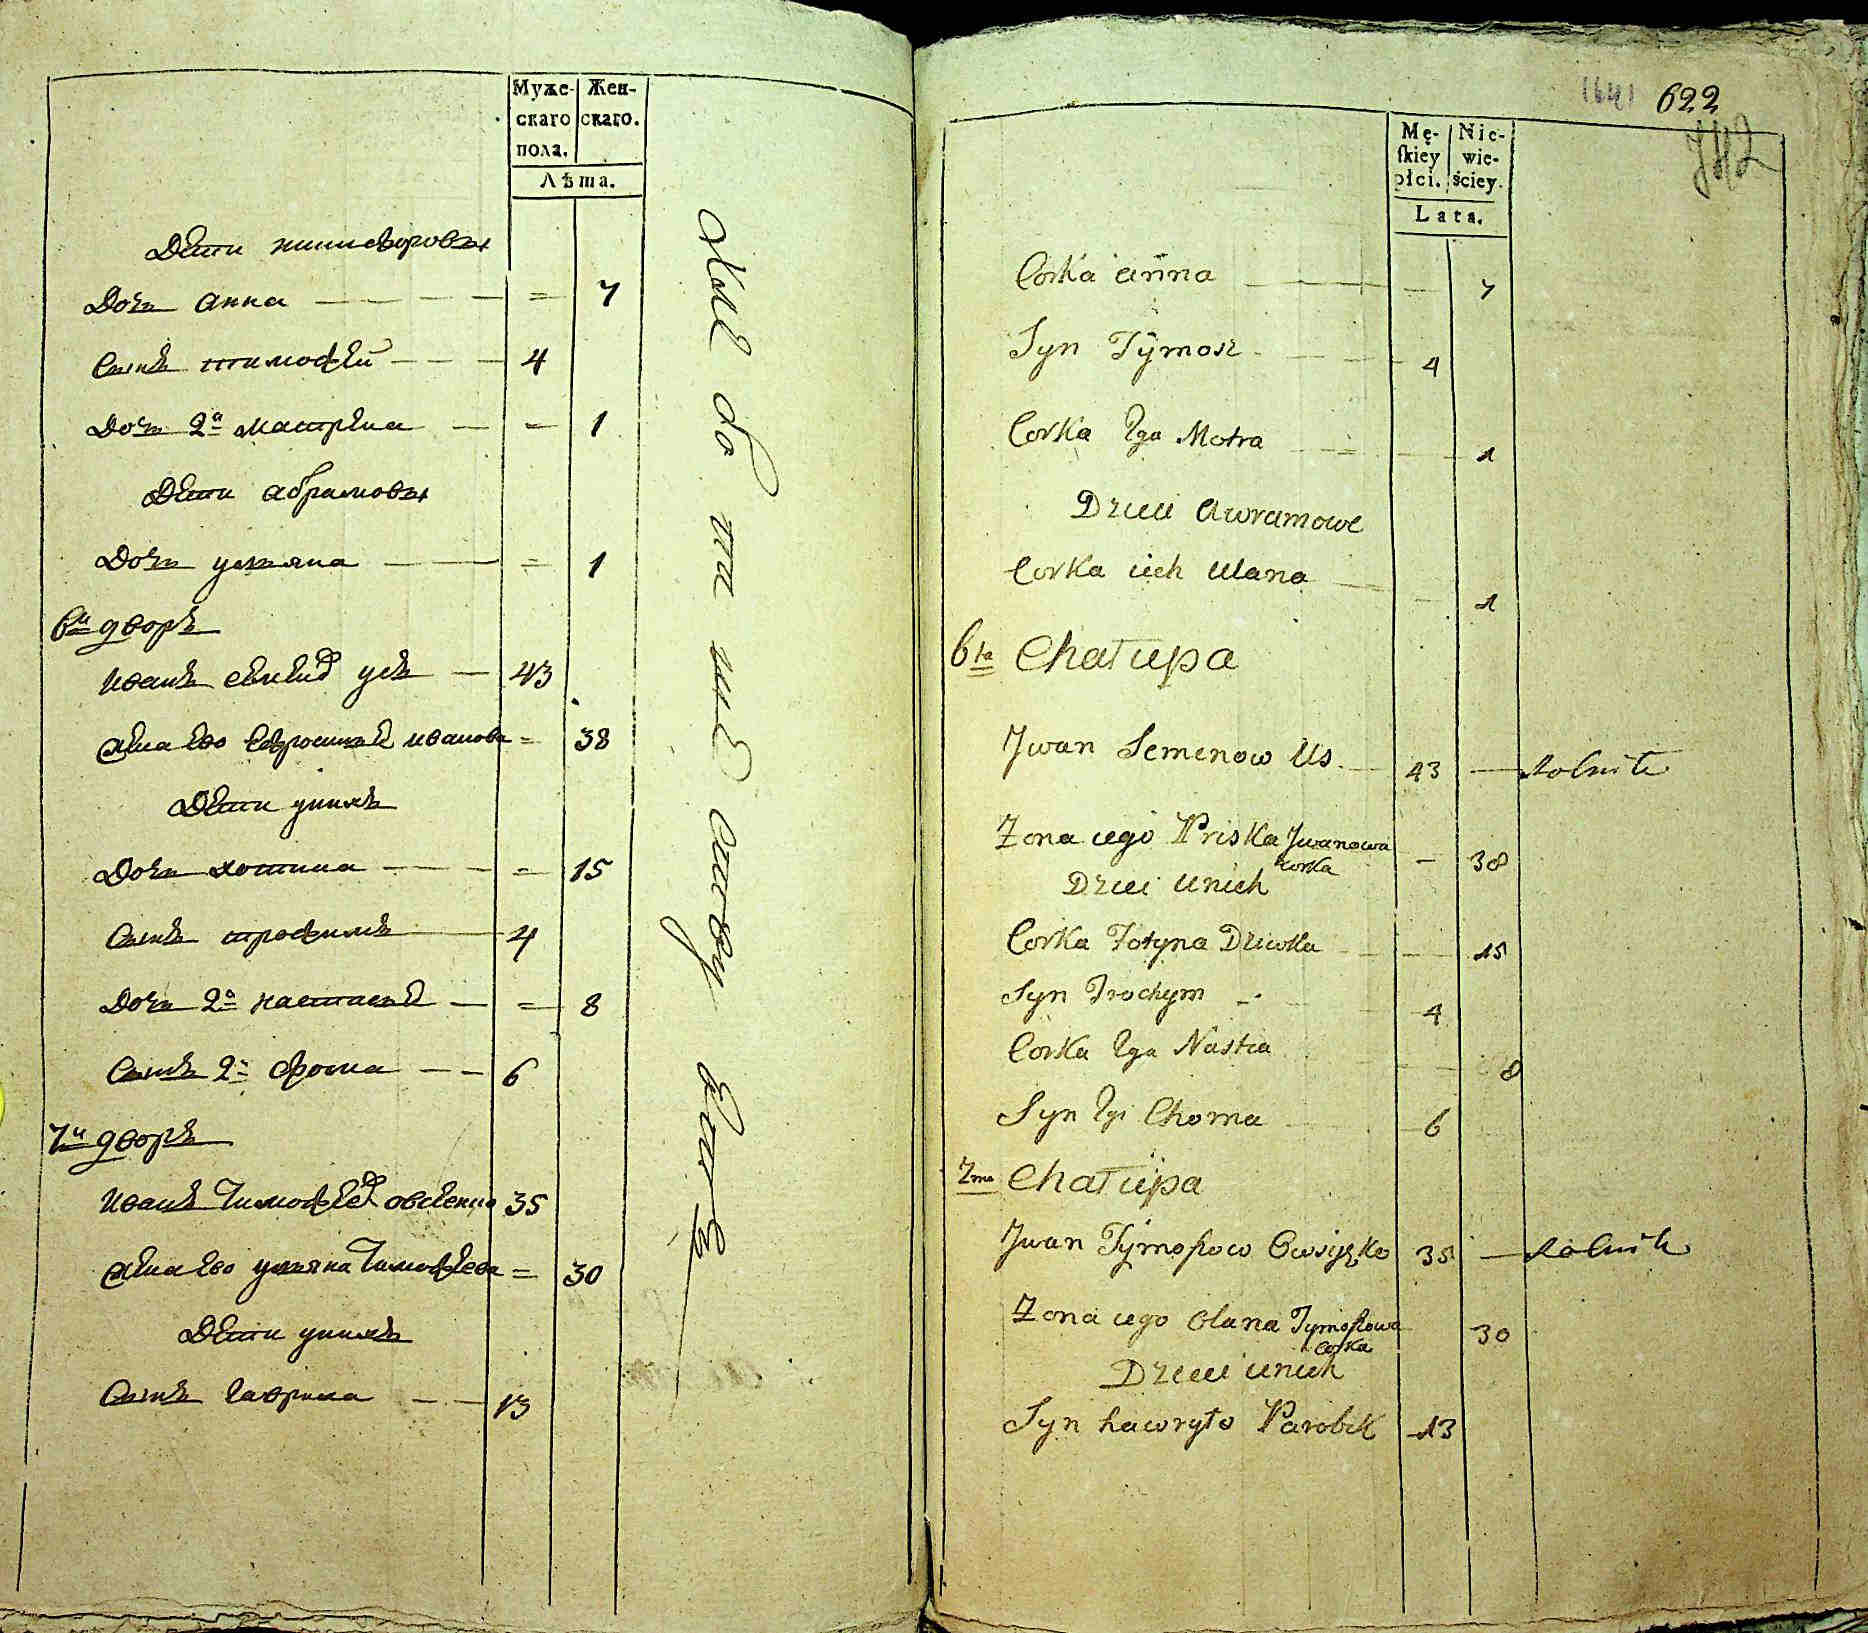 Муже-
скаго
пола.
Жен-
скаго.
Лѣта.
Дети никифоровы
Дочь анна 7
Сынъ тимофей 4
Дочь 2я матрена 1
Дети абрамовы
Дочь ульяна 1
6й дворъ
Иванъ усъ 43
Жена ево иванова 38
Дети унихъ
Дочь хотина 15
Сынъ трофимъ 4
Дочь 2я настасия 8
Сынъ 2й фома 6
7й дворъ
Иванъ Тимофеев овсеенко 35
Жена ево ульяна Тимофеева 30
Дети унихъ
Сынъ Гаврила 13
622
742
Mę-
skiey
płci.
Nie-
wie-
ściey.
Lata.
Corka anna 7
Syn Tymosz 4
Corka 2ga Motra 1
Dzieci Awramowe
Corka iich Ulana 1
6ta Chałupa
Jwan Semenow Us 43 Rolnik
Zona iego Priska Jwanowa
corka 38
Dzieci Unich
Corka Fotyna Dziewka 15
Syn Trochym 4
Corka 2ga Nastia 8
Syn 2gi Choma 6
7ma Chałupa
Jwan Tymofiow Owsiyenko 35 Rolnik
Zona iego Olana Tymofiowa
corka 30
Dzieci unich
Syn hawryło Parobek 13